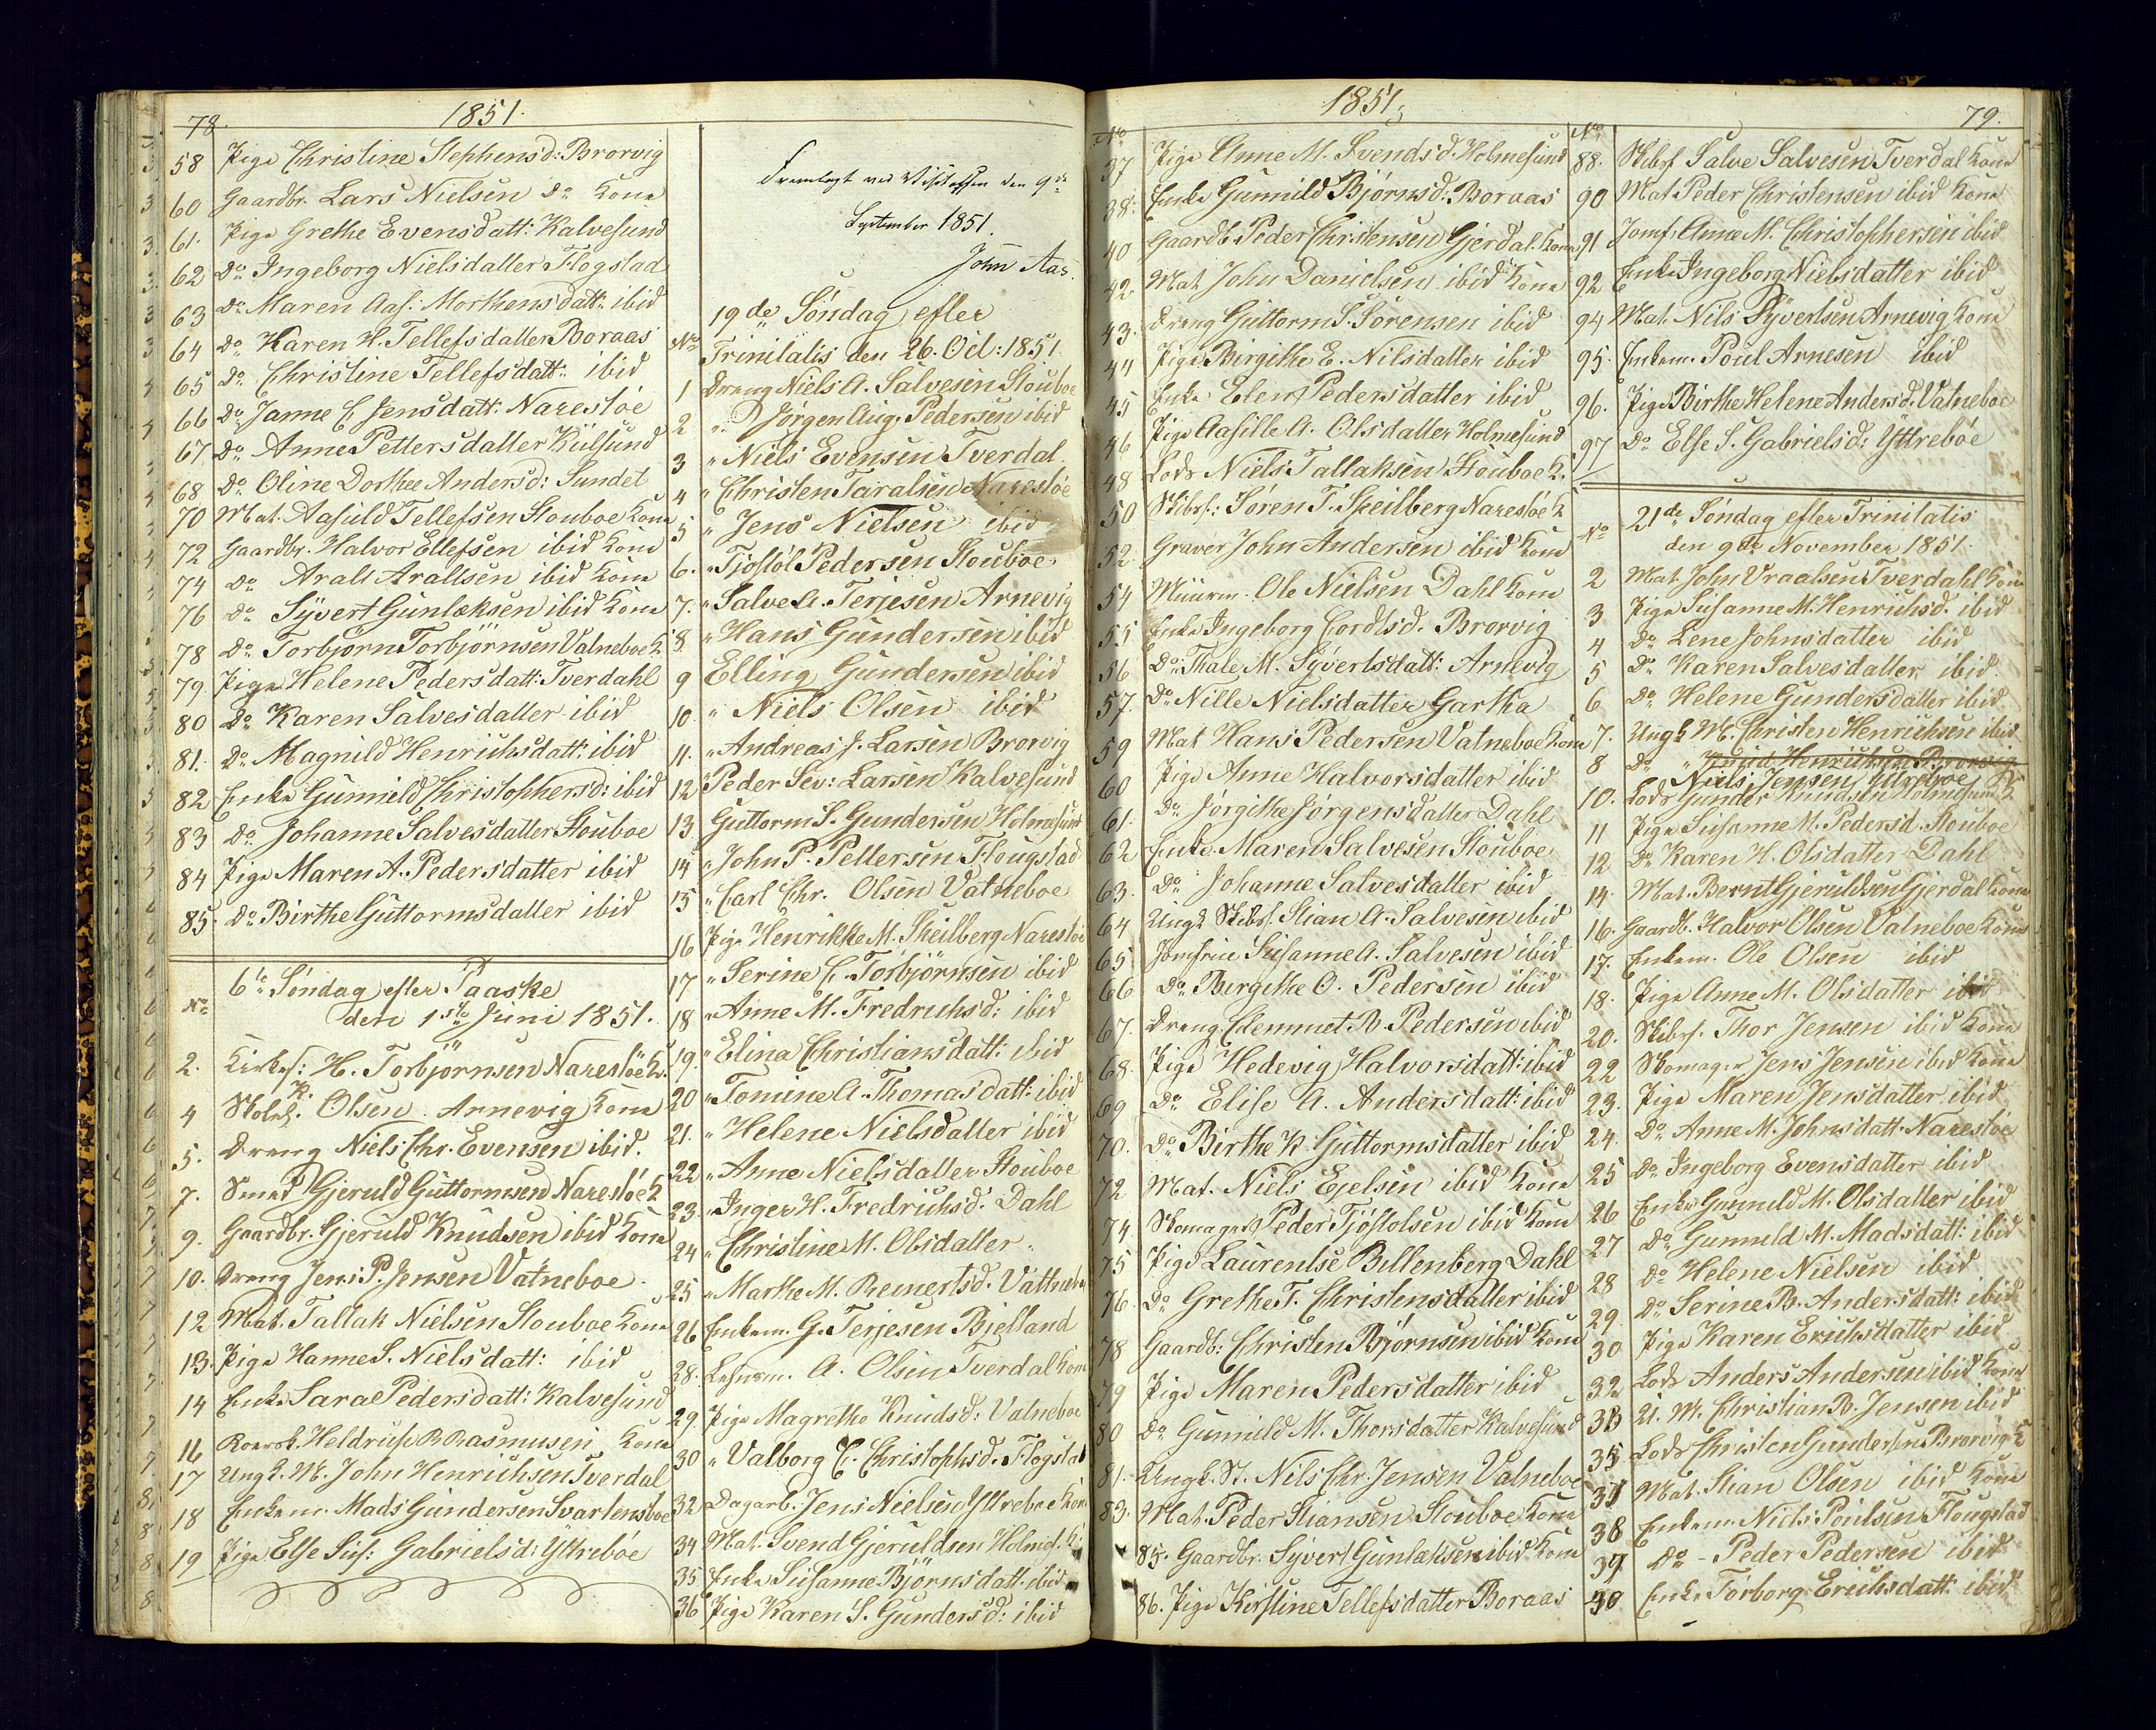 78.
1851.
58 Pige Christine Stephensd: Brorvig
60 Gaardbr. Lars Nielsen do Kone
61. Pige Grethe Evensdatt: Kalvesund
62 Do Ingeborg Nielsdatter Flogstad
63 Do Maren Aas: Morthensdatt: ibid
64 Do Karen H. Tellefsdatter Boraas
65 Do Christine Tellefsdatt: ibid
66 Do Janne C Jensdatt: Narestøe
67. Do Anne Pettersdatter Kulsund
68 Do Oline Dorthee Andersd: Sundet
70 Mat. Aasuld Tellefsen Stouboe Kone
72 Gaardbr. Halvor Ellefsen ibid Kone
74 Do Aralt Araltsen ibid Kone
76 Do Syvert Gunlaksen ibid Kone
78 Do Torbjørn Torbjörnsen Vatneboe K
79. Pige Helene Pedersdatt: Tverdahl
80 Do Karen Salvesdatter ibid
81. Do Magnild Henrichsdatt: ibid
82 Enke Gunnild Christophersd: ibid
83 Do Johanne Salvesdatter Stouboe
84 Pige Maren A. Pedersdatter ibid
85. Do Birthe Guttormsdatter ibid
6te Søndag efter Paaske
No den 1ste Juni 1851.
2. Kirkes: H. Torbjörnsen Narestöe K.
4 Skolel. K. Olsen Arnevig Kone
5. Dreng Niels Chr. Evensen ibid.
7. Smed Gjeruld Guttormsen Narestöe K
9. Gaardbr. Gjeruld Knudsen ibid Kone
10. Dreng Jens P. Jensen Vatneboe
12 Mat. Tallak Nielsen Stouboe Kone
13. Pige Hanne S. Nielsdatt: ibid
14 Enke Sarae Pedersdatt: Kalvesund
16 Heldrup R Rasmusen, Kone
17 Ungk. M. John Henrichsen Tverdal
18 Enkem. Mads Gundersen Svartensboe
19 Pige Else Sus: Gabrielsd: Yttreböe
Fremlagt ved Visitatsen den 9de
September 1851.
John Aas.
19de Søndag efter
No Trinitatis den 26. Oct: 1851
1 Dreng Niels A. Salvesen Stouboe
2 " Jörgen Aug. Pedersen ibid
3 " Niels Evensen Tverdal
4 " Christen Taralsen Narestöe
5 " Jens Nielsen ibid
6. " Tjöstöl Pedersen Stouboe
7. " Salve A. Terjesen Arnevig
8. " Hans Gundersen ibid
9 Elling Gundersen ibid
10. " Niels Olsen ibid
11. " Andreas J. Larsen Brorvig
12 Peder Sev: Larsen Kalvesund
13. Guttorm S. Gundersen Holmesund
14 " John P. Pettersen Flougstad
15 " Carl Chr. Olsen Vatneboe
16 Pige Henrikke M. Skeilberg Narestöe
17 " Serine C. Torbjörnsen ibid
18 " Anne M. Fredrichsd: ibid
19. " Elina Christiansdatt: ibid
20 " Tomine A. Thomasdatt: ibid
21. " Helene Nielsdatter ibid
22 " Anne Nielsdatter Stouboe
23. " Inger H. Fredrichsd. Dahl
24 " Christine M. Olsdatter "
25 " Marthe M. Reinertsd. Vattneb
26 Enkem. G. Terjesen Bjelland
28. Lehnsm. A. Olsen Tverdal Kone
29. Pige Magrethe Knudsd: Vatneboe
30 " Valborg C. Christophsd. Flogstad
32 Dagarb. Jens Nielsen Yttreboe Kone
34 Mat. Svend Gjeruldsen Holmes. K
35. Enke Susanne Björnsdatt: ibid
36 Pige Karen S. Gundersd: ibid
1851.
79.
No
37 Pige Anne M. Svendsd. Holmesund
38. Enke Gunnild Bjørnsd: Boraas
40 Gaardb. Peder Christensen Gjerdal. Kone
42. Mat John Danielsen ibid Kone
43. Dreng Guttorm S. Sørensen ibid
44 Pige Birgithe E. Nilsdatter ibid
45 Enke Elen Pedersdatter ibid
46 Pige Aasille A. Olsdatter Holmesund
48 Lods Niels Tallaksen Stouboe K.
50 Skibsf: Søren T. Skeilberg Narestöe K
52. Graver John Andersen ibid Kone
54 Muurm. Ole Nielsen Dahl Kone
55 Enke Ingeborg Cordtsd. Brorvig
56 Do Thale M. Syvertsdatt: Arnevig
57. Do Nille Nielsdatter Gartha
59 Mat Hans Pedersen Vatneboe Kone
60 Pige Anne Halvorsdatter ibid
61. Do Jörgithe Jörgensdatter Dahl
62 Enke Maren Salvesen Stouboe
63. Do Johanne Salvesdatter ibid
64 Ungk Skibsf. Stian A. Salvesen ibid
65 Jomfrue Susanne A. Salvesen ibid
66 Do Bergithe O. Pedersen ibid
67. Dreng Clemmet A. Pedersen ibid
68. Pige Hedevig Halvorsdatt: ibid
69 Do Elise A. Andersdatt: ibid
70. Do Birthe K. Guttormsdatter ibid
72 Mat. Niels Ejelsen ibid Kone
74. Skomager Peder Tjöstolsen ibid Kone
75 Pige Laurentse Bellenberg Dahl
76. Do Grethe T. Christensdatter ibid
78 Gaardb: Christen Bjørnsen ibid Kone
79 Pige Maren Pedersdatter ibid
80 Do Gunnild M. Thorsdatter Kalvesund
81. Ungk. St. Nils Chr. Jensen Vatneboe
83. Mat. Peder Stiansen Stouboe Kone
85. Gaardbr. Syvert Gunlaksen ibid Kone
86. Pige Kirstine Tellefsdatter Boraas
No
88. Skibsf Salve Salvesen Tverdal Kone
90 Mat Peder Christensen ibid Kone
91 Jomf. Anne M. Christophersen ibid
92 Enke Ingeborg Nielsdatter ibid
94 Mat. Nils Syvertsen Arnevig Kone
95. Enkem. Poul Arnesen ibid
96. Pige Birthe Helene Andersd. Vatneboe
97 Do Else S. Gabrielsd: Yttreböe
21de Søndag efter Trinitatis
No den 9de November 1851
2 Mat. John Vraalsen Tverdahl Kone
3 Pige Susanne M. Henrichsd. ibid
4 Do Lene Johnsdatter ibid
5 Do Karen Salvesdatter ibid.
6 Do Helene Gundersdatter ibid
7. Ungk M. Christen Henrichsen ibid
8 Do " Henrichsen Brorvig
Niels Jensen Yttreboe
10. Lods Gunder Knudsen Holmesund K
11 Pige Susanne M. Pedersd. Stouboe
12 Do Karen H. Olsdatter Dahl
14. Mat. Bernt Gjeruldsen Gjerdal Kone
16. Gaardb. Halvor Olsen Vatneboe Kone
17. Enkem. Ole Olsen ibid
18. Pige Anne M. Olsdatter ibid
20. Skibsf. Thor Jensen ibid Kone
22 Skomager Jens Jensen ibid Kone
23. Pige Maren Jensdatter ibid
24. Do Anne M. Johnsdatt. Narestöe
25 Do Ingeborg Evensdatter ibid
26 Enke Gunnuld M. Olsdatter ibid
27 Do Gunnuld M. Madsdatt: ibid
28 Do Helene Nielsen ibid
29. Do Serine B. Andersdatt: ibid
30 Pige Karen Erichsdatter ibid
32 Lods Anders Andersen ibid Kone
33 U. M. Christian B. Jensen ibid
35 Lods Christen Gundersen Brorvig K
37 Mat. Stian Olsen ibid Kone
38 Enkem. Niels Poulsen Flougstad
39 Do - Peder Pedersen ibid
30 Enke Torborg Erichsdatt: ibid